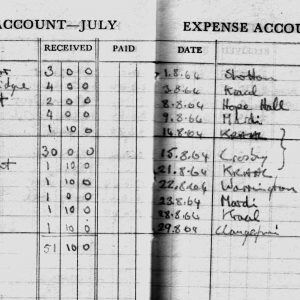 ACCOUNT—JULY
RECEIVED PAID
3 0 0
4 0 0
2 0 0
4 0 0
1 10 0
30 0 0
1 10 0
1 10 0
1 0 0
1 10 0
1 10 0
51 10 0
EXPENSE ACCOU
DATE
1.8.64 Shotton
3.8.64 Kraal
8.8.64 Hope Hall
9.8.64 Mardi
14.8.64
15.8.64 Crosby
21.8.64 KRAAL
22.8.64 Warrington
23.8.64 Mardi
28.8.64 Kraal
29.8.64 Llangefni